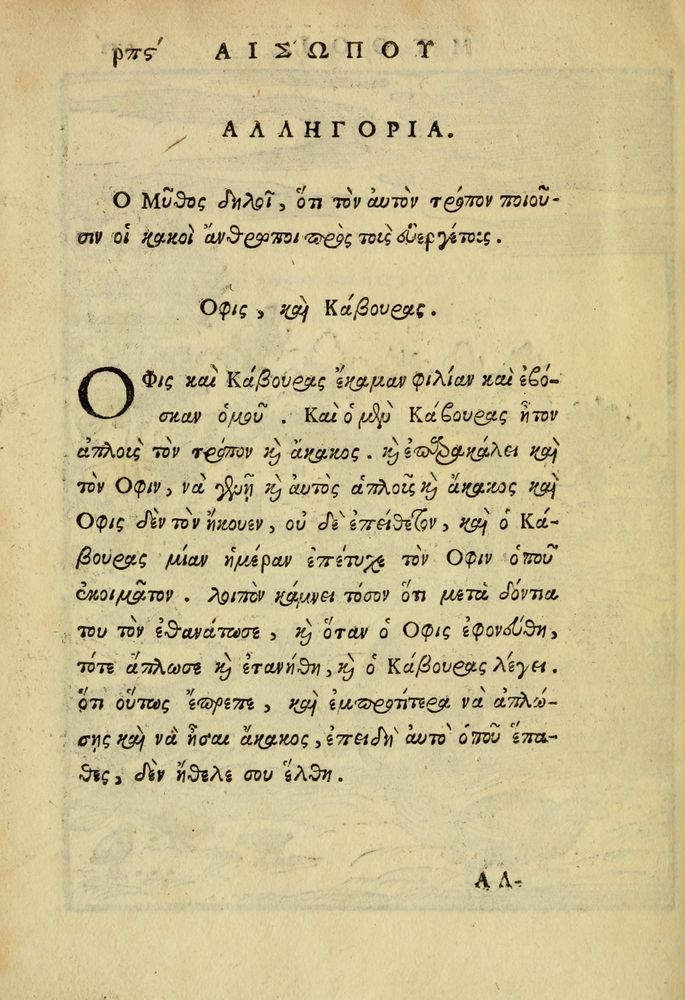 ρπς΄ ΑΙΣΩΠΟΥ
ΑΛΛΗΓΟΡΙΑ.
Ο Μῦθος δηλοῖ, ὅτι τὸν ἀυτὸν τρόπον ποιοῦ-
σιν οἱ κακοὶ ἄνθρωποι πρὸς τοὶς ἐυεργέτοις.
Οφις, καὶ Κάβουρας.
Οφις καὶ Κάβουρας ἔκαμαν φιλίαν καὶ ἐβό-
σκαν ὁμοῦ. Καὶ ὁ μὲν Κάβουρας ἦτον
ἁπλοὶς τὸν τρόπον κὶ ἄκακος. κὶ ἐπαρακάλει καὶ
τὸν Οφιν, νὰ γλυῇ κὶ ἀυτὸς ἁπλοῖς κὶ ἄκακος καὶ
Οφις δὲν τὸν ἤκουεν, οὐ δὲ ἐπείθετον, καὶ ὁ Κά-
βουρας μίαν ἡμέραν ἐπέτυχε τὸν Οφιν ὁποῦ
ἐκοιμᾶτον. λοιπὸν κάμνει τόσον ὅτι μετὰ δόντια
του τὸν ἐθανάτωσε, κὶ ὅταν ὁ Οφις ἐφονεύθη,
τότε ἅπλωσε κὶ ἐτανήθη, κὶ ὁ Κάβουρας λέγει.
ὅτι οὕτως ἔπρεπε, καὶ ἐμπροτίτερα νὰ ἁπλώ-
σῃς καὶ νὰ ἦσαι ἄκακος, ἐπειδὴ ἀυτὸ ὁποῦ ἔπα-
θες, δὲν ἤθελε σου ἔλθη.
ΑΛ-